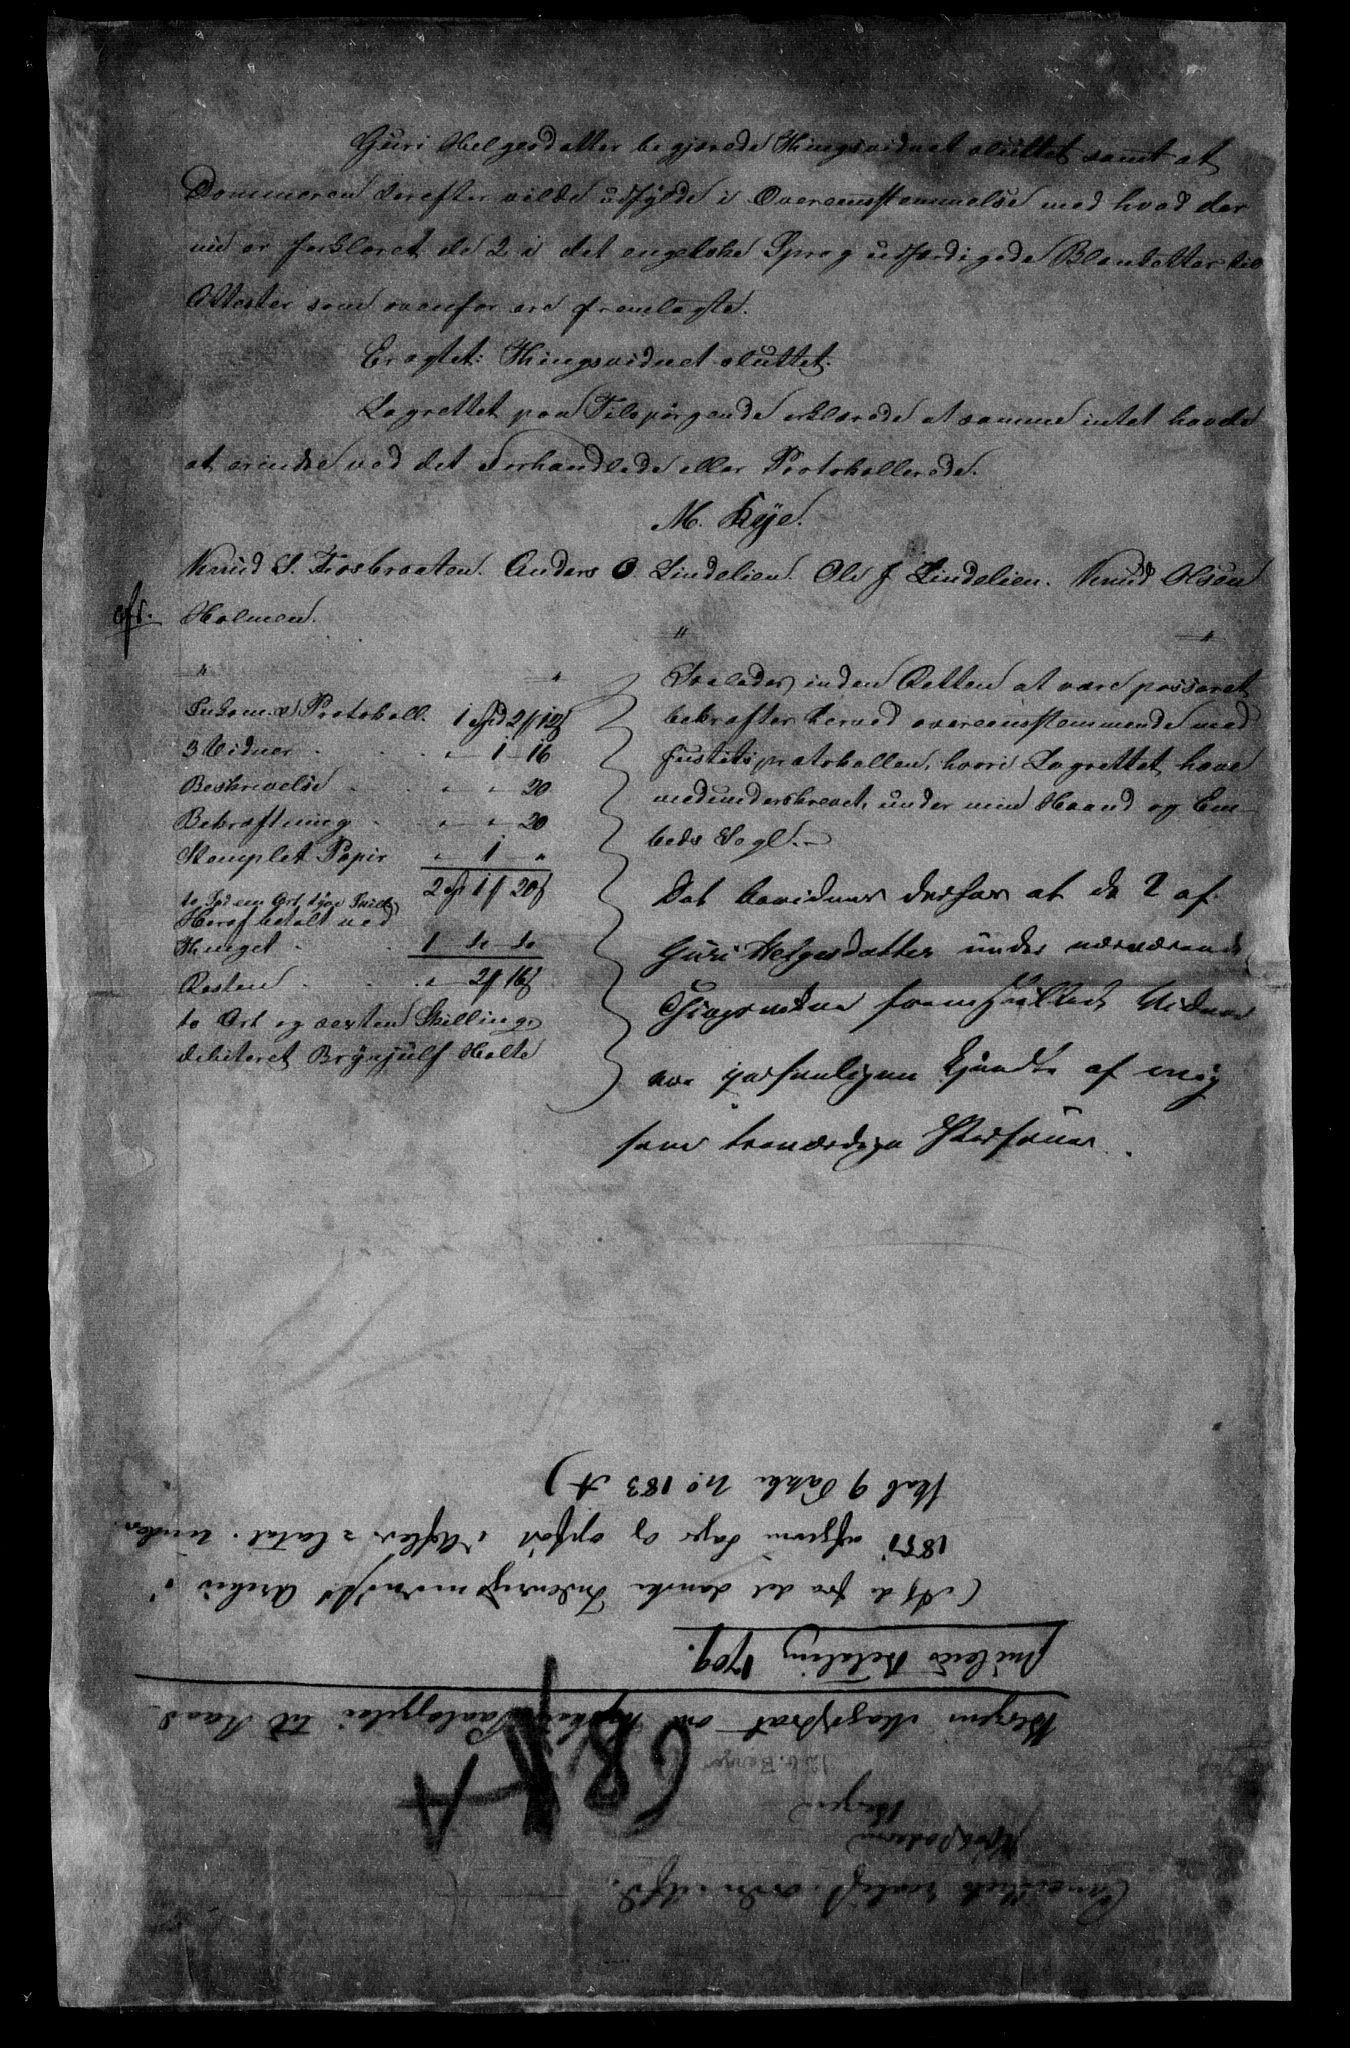 Guri Helgesdatter begjærede Thingsvidnet sluttet samt at
Dommeren derefter vilde udfylde i Overeensstemmelse med hvad der
nu er forklaret de 2 i det engelske Sprog udfærdigede Blanketter til
Attester som ovenfor ere fremlagte.
Eragtet: Thingsvidnet sluttet.
Lagrettet paa Tilspørgende erklærede at samme intet havde
at erindre ved det Forhandlede eller Protokollerede.
M. Kye.
Knud S. Fosbraaten. Anders O. Lindelien. Ole J. Lindelien. Knud Olsen
Holmen.
" "
" "
Indkom. o Protokoll. 1 Spd 2 f 12 s
3 Vidner . . . " 1 - 16
Beskrivelse . . " " 20
Bekræftning . " " 20
Stemplet Papir " 1 "
2 Sp 1 f 20 s
to Spd een Ort tyve Skill.
Heraf betalt ved
Thinget . . 1 So So
Resten . . . " 2 f 16 s
to Ort og sexten Skilling
debiteret Brynjulf Holte
Saaledes inden Retten at være passeret
bekræftes herved overeensstemmende med
Justitsprotokollen, hvori Lagrettet have
medunderskrevet, under min Haand og Em-
beds Segl. -
Det bevidnes derhos at de 2 af
Guri Helgesdatter under nærværende
Thingsvidne fremstillede Vidner
ere personligen kjendte af mig
som troværdige Personer.
Cancelliets
Bergen
12 b. Bergen
68 A
A
Bergens Magistrat om Paalæggelse til Raad-
Betaling 1709.
(Afl. fra det danske Indenrigsminist. Arkiv i
1851 afgivne Sager og opført i Aflev. Catal. under
Skab 9 Pakke No 183 A)